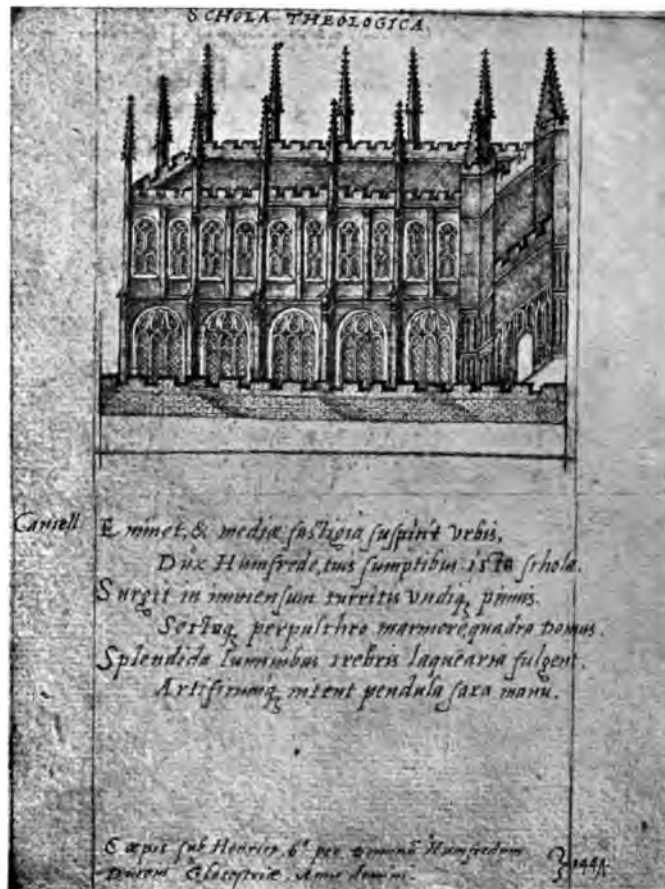 SCHOLA THEOLOGICA.
Cancell
Eminet, & mediæ fastigia suspicit vrbis,
Dux Humfrede, tuis sumptibus ista schola.
Surgit in immensum turritis vndiq, pinnis
Sectaq, perpulchro marmore, quadra Domus.
Splendida luminibus crebris laquearia fulgent.
Artificumq, nitent pendula saxa manu.
Cæpit sub Henrico. 6º per Humfredum
Ducem Glocestriæ. Anno domini.